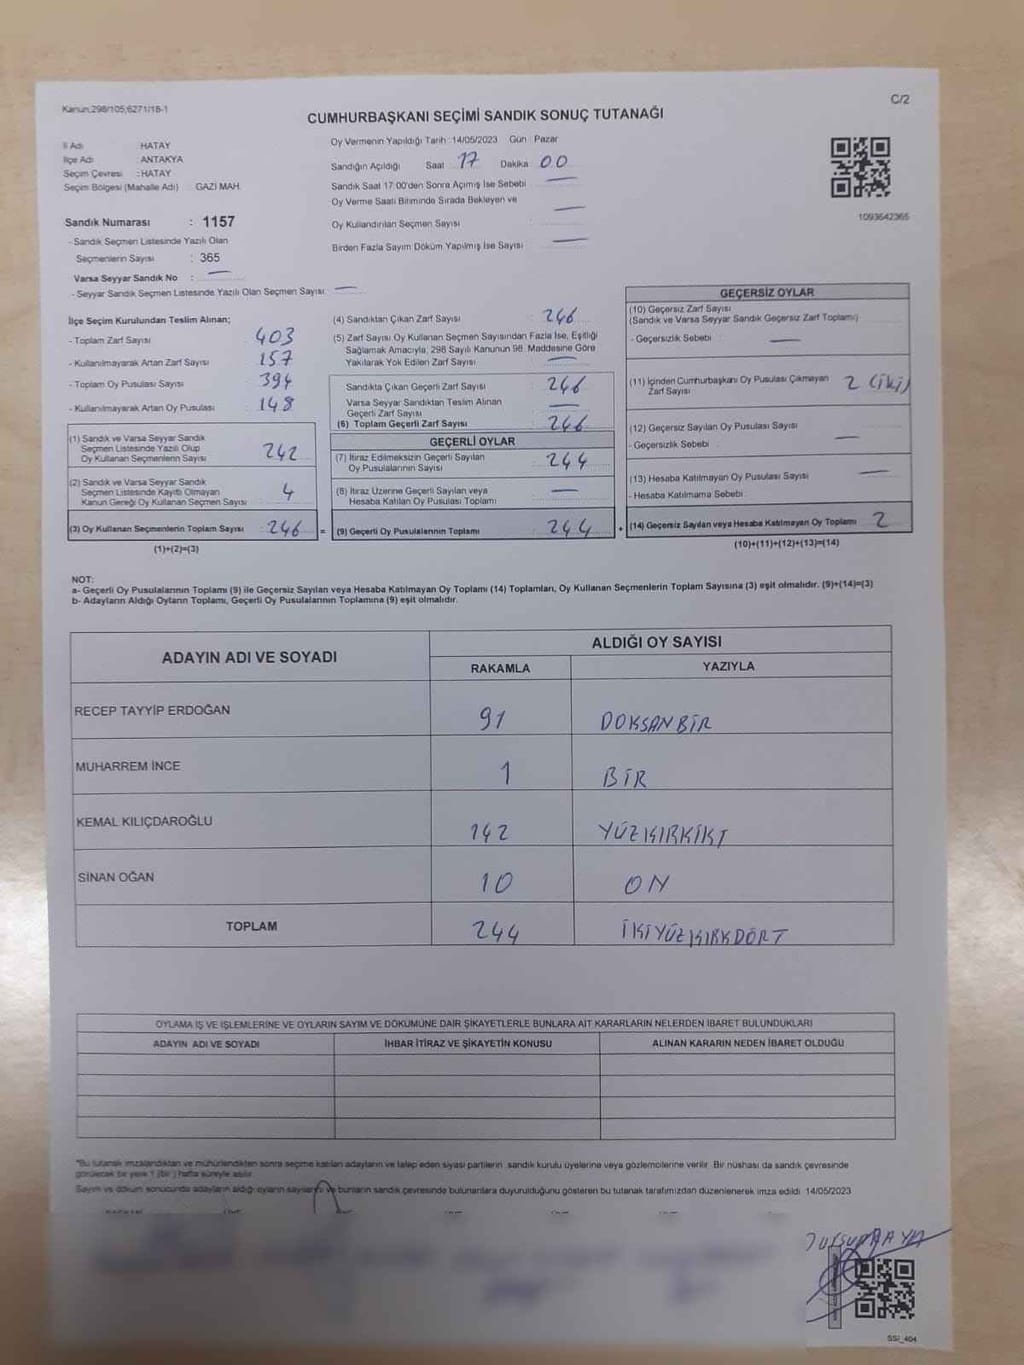 Kanun:298/105,6271/18-1
C/2
CUMHURBAŞKANI SEÇİMİ SANDIK SONUÇ TUTANAĞI
İl Adı : HATAY
İlçe Adı : ANTAKYA
Seçim Çevresi : HATAY
Seçim Bölgesi (Mahalle Adı) GAZİ MAH.
Oy Vermenin Yapıldığı Tarih :14/05/2023 Gün : Pazar
Sandığın Açıldığı Saat 17 Dakika 00
Sandık Saat 17:00'den Sonra Açımış İse Sebebi —
Oy Verme Saati Bitiminde Sırada Bekleyen ve
Oy Kullandırılan Seçmen Sayısı —
Birden Fazla Sayım Döküm Yapılmış İse Sayısı —
1093642365
Sandık Numarası : 1157
- Sandık Seçmen Listesinde Yazılı Olan
Seçmenlerin Sayısı : 365
Varsa Seyyar Sandık No : —
- Seyyar Sandık Seçmen Listesinde Yazılı Olan Seçmen Sayısı: —
İlçe Seçim Kurulundan Teslim Alınan;
- Toplam Zarf Sayısı : 403
- Kullanılmayarak Artan Zarf Sayısı : 157
- Toplam Oy Pusulası Sayısı : 394
- Kullanılmayarak Artan Oy Pusulası : 148
(1) Sandık ve Varsa Seyyar Sandık
Seçmen Listesinde Yazılı Olup
Oy Kullanan Seçmenlerin Sayısı : 242
(2) Sandık ve Varsa Seyyar Sandık
Seçmen Listesinde Kayıtlı Olmayan
Kanun Gereği Oy Kullanan Seçmen Sayısı : 4
(3) Oy Kullanan Seçmenlerin Toplam Sayısı : 246 =
(1)+(2)=(3)
(4) Sandıktan Çıkan Zarf Sayısı : 246
(5) Zarf Sayısı Oy Kullanan Seçmen Sayısından Fazla İse, Eşitliği
Sağlamak Amacıyla, 298 Sayılı Kanunun 98. Maddesine Göre
Yakılarak Yok Edilen Zarf Sayısı : —
Sandıkta Çıkan Geçerli Zarf Sayısı : 246
Varsa Seyyar Sandıktan Teslim Alınan
Geçerli Zarf Sayısı : —
(6) Toplam Geçerli Zarf Sayısı : 246
GEÇERLİ OYLAR
(7) İtiraz Edilmeksizin Geçerli Sayılan
Oy Pusulalarının Sayısı : 244
(8) İtiraz Üzerine Geçerli Sayılan veya
Hesaba Katılan Oy Pusulası Toplamı : —
(9) Geçerli Oy Pusulalarının Toplamı : 244 +
GEÇERSİZ OYLAR
(10) Geçersiz Zarf Sayısı
(Sandık ve Varsa Seyyar Sandık Geçersiz Zarf Toplamı)
- Geçersizlik Sebebi : —
(11) İçinden Cumhurbaşkanı Oy Pusulası Çıkmayan
Zarf Sayısı 2 (iki)
(12) Geçersiz Sayılan Oy Pusulası Sayısı
- Geçersizlik Sebebi : —
(13) Hesaba Katılmayan Oy Pusulası Sayısı : —
- Hesaba Katılmama Sebebi :
(14) Geçersiz Sayılan veya Hesaba Katılmayan Oy Toplamı : 2
(10)+(11)+(12)+(13)=(14)
NOT:
a- Geçerli Oy Pusulalarının Toplamı (9) ile Geçersiz Sayılan veya Hesaba Katılmayan Oy Toplamı (14) Toplamları, Oy Kullanan Seçmenlerin Toplam Sayısına (3) eşit olmalıdır. (9)+(14)=(3)
b- Adayların Aldığı Oyların Toplamı, Geçerli Oy Pusulalarının Toplamına (9) eşit olmalıdır.
ADAYIN ADI VE SOYADI ALDIĞI OY SAYISI
RAKAMLA YAZIYLA
RECEP TAYYİP ERDOĞAN 91 DOKSANBİR
MUHARREM İNCE 1 BİR
KEMAL KILIÇDAROĞLU 142 YÜZKIRKİKİ
SİNAN OĞAN 10 ON
TOPLAM 244 İKİYÜZKIRKDÖRT
OYLAMA İŞ VE İŞLEMLERİNE VE OYLARIN SAYIM VE DÖKÜMÜNE DAİR ŞİKAYETLERLE BUNLARA AİT KARARLARIN NELERDEN İBARET BULUNDUKLARI
ADAYIN ADI VE SOYADI İHBAR İTİRAZ VE ŞİKAYETİN KONUSU ALINAN KARARIN NEDEN İBARET OLDUĞU
*Bu tutanak imzalandıktan ve mühürlendikten sonra seçime katılan adayların ve talep eden siyasi partilerin sandık kurulu üyelerine veya gözlemcilerine verilir. Bir nüshası da sandık çevresinde
görülecek bir yere 1 (bir) hafta süreyle asılır.
Sayım ve döküm sonucunda adayların aldığı oyların sayısını ve bunların sandık çevresinde bulunanlara duyurulduğunu gösteren bu tutanak tarafımızdan düzenlenerek imza edildi. 14/05/2023
SSİ_404